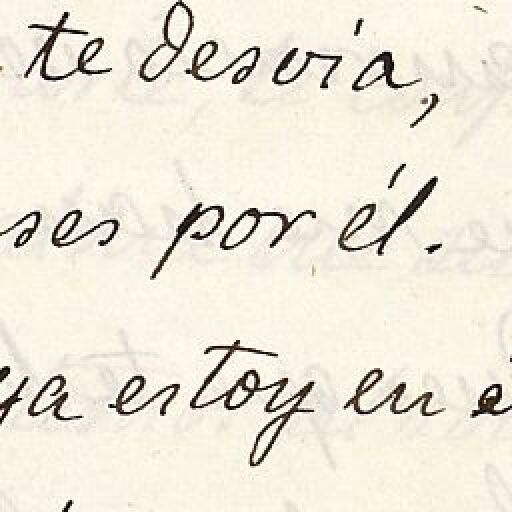 te desvía,
ses por él.
ya estoy en é